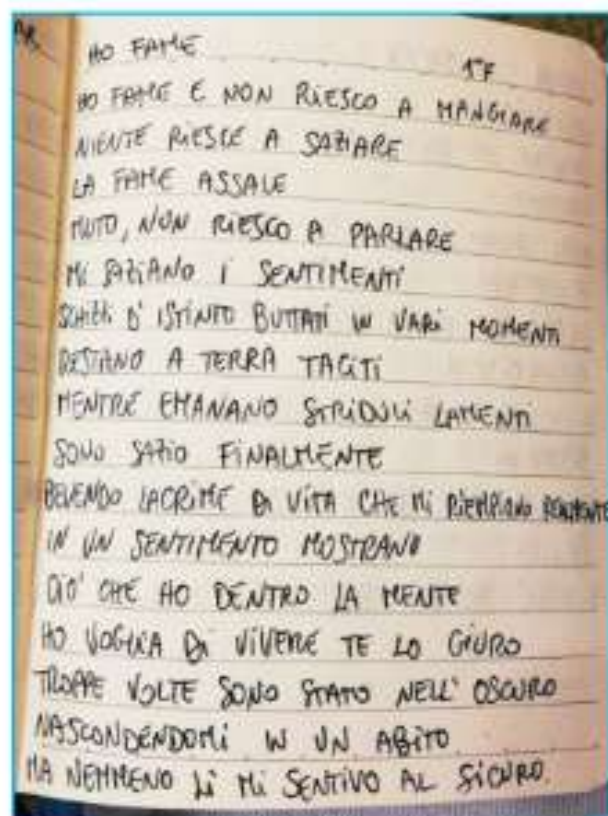 HO FAME
1°F
HO FAME E NON RIESCO A MANGIARE
NIENTE RIESCE A SAZIARE
LA FAME ASSALE
MUTO, NON RIESCO A PARLARE
MI SAZIANO I SENTIMENTI
SCHIZZI D'ISTINTO BUTTATI IN VARI MOMENTI
RESTANO A TERRA TACITI
MENTRE EMANANO STRIDULI LAMENTI
SONO SAZIO FINALMENTE
BEVENDO LACRIME DI VITA CHE MI RIEMPIONO REALMENTE
IN UN SENTIMENTO MOSTRANO
CIO' CHE HO DENTRO LA MENTE
HO VOGLIA DI VIVERE TE LO GIURO
TROPPE VOLTE SONO STATO NELL'OSCURO
NASCONDENDOMI IN UN ABITO
MA NEMMENO LÌ MI SENTIVO AL SICURO.